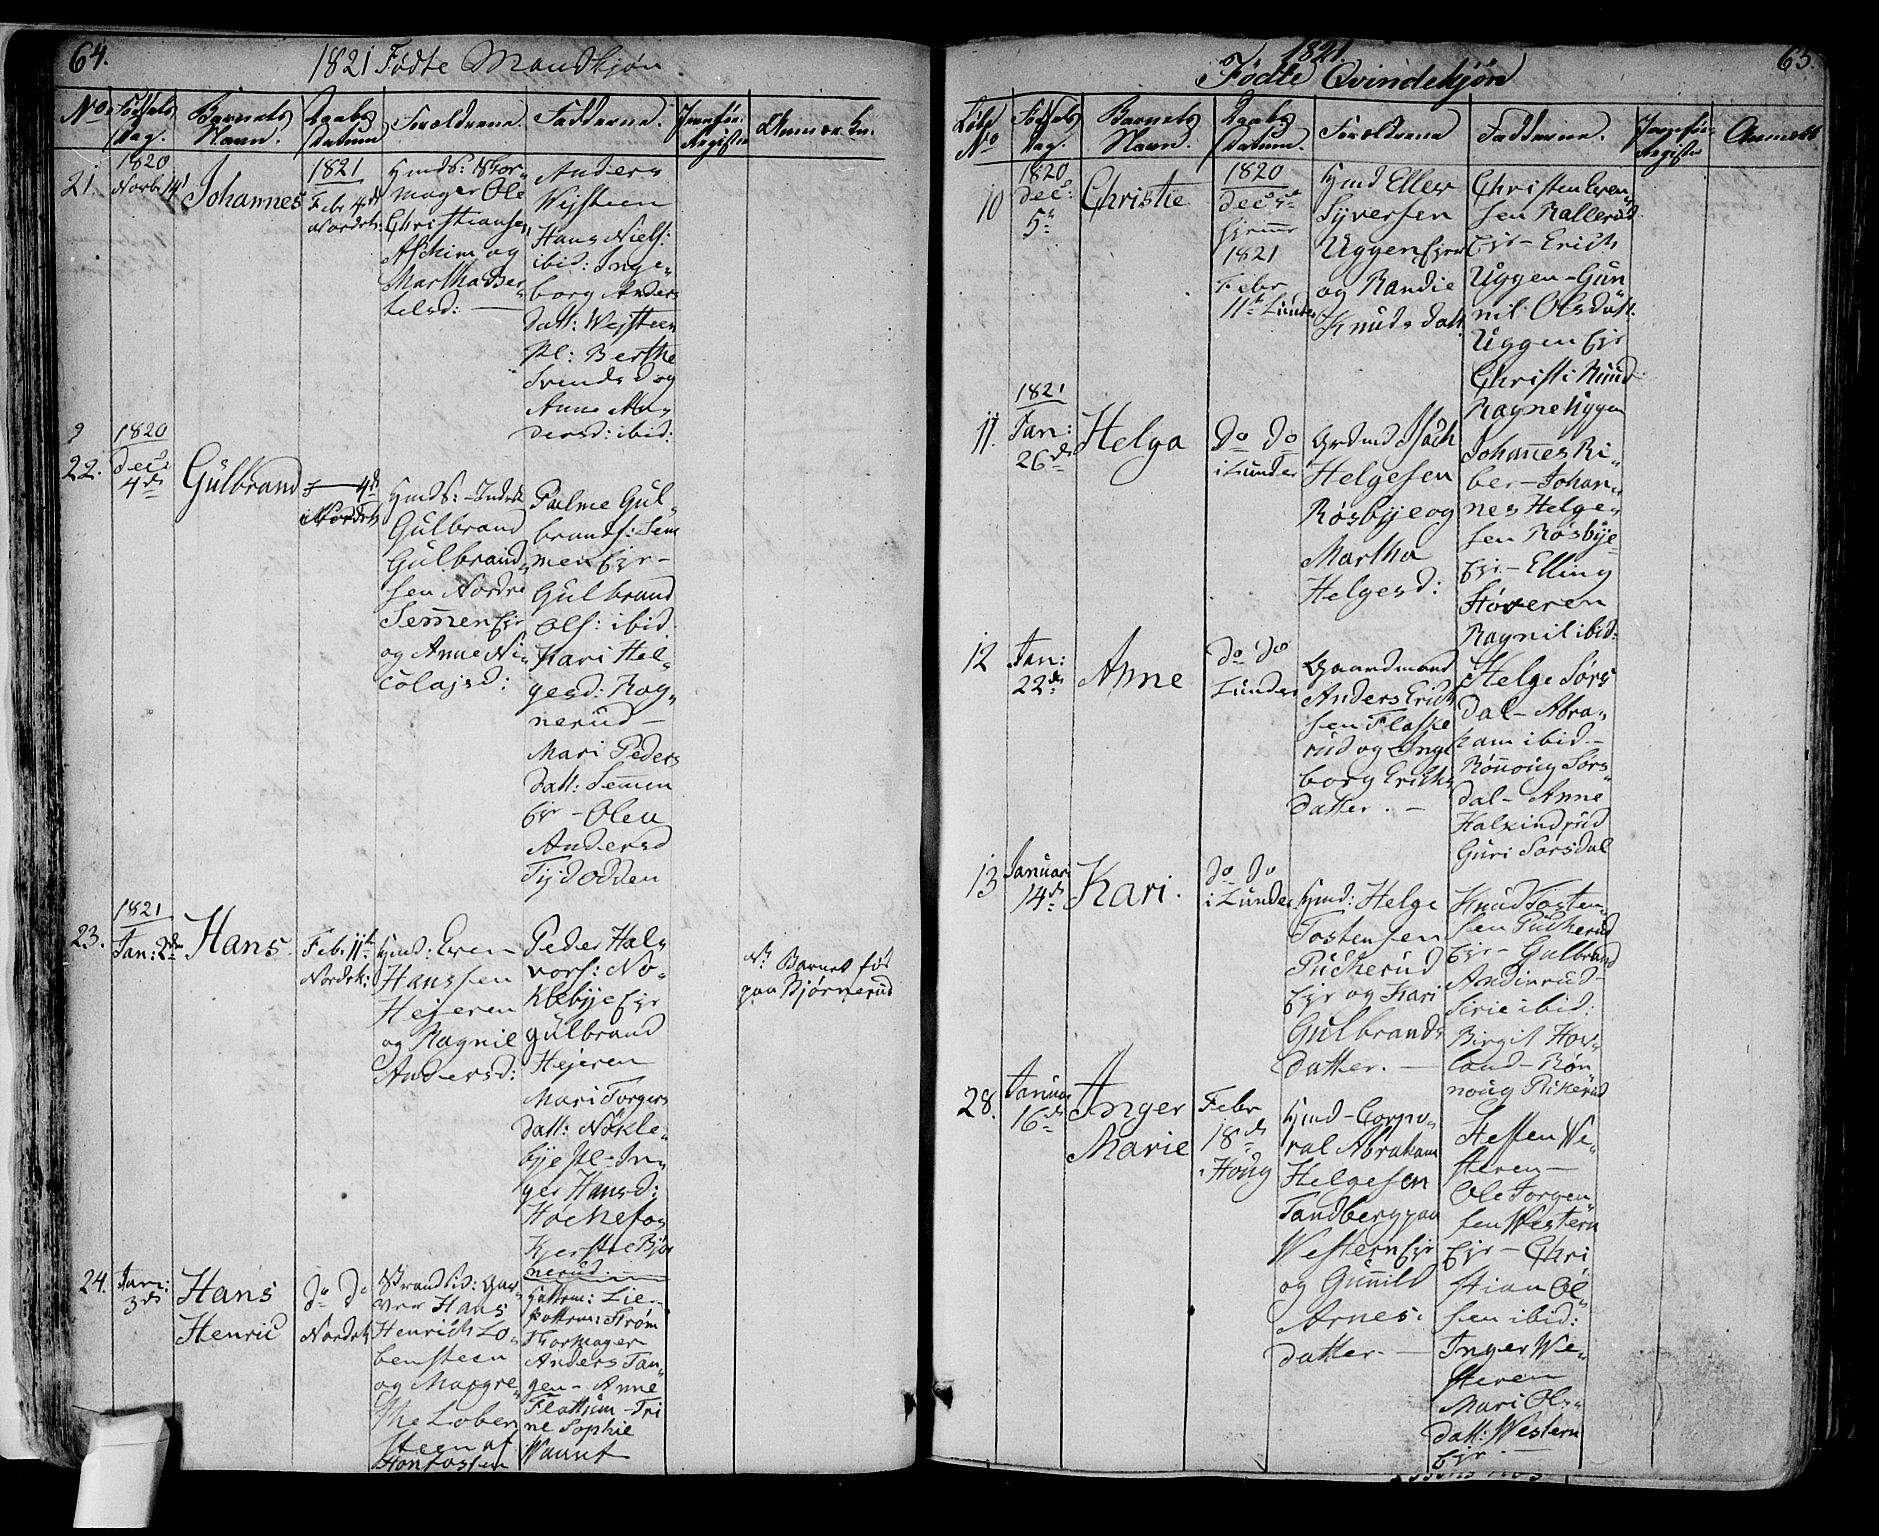 64.
1821 Fødte Mandkjøn.
No.
Fødsels Dag.
Barnets Navn.
Daabs Datum
Forældrene.
Fadderne.
Jevnfør: Register
Anmærkn.
21.
1820
Novbr 14d
Johannes
1821
Febr 4de
Nordrk:
mager Ole
Christiansen
Aschim og
Martha Ber-
telsd:
Anders
Wejsteen
Hans Niels:
ibid: Inge-
borg Anders
datt: Wejsteen
Pl: Berthe
Svendsd og
Anne An-
dersd: ibid:
22.
1820
Decbr
4de
Gulbrand
4de
i Nordrk
Gulbrand
Gulbrand-
sen Nordre
Semen Ejr
og Anne Ni-
colajsd:
Palme Gul-
brands: Sem
men Ejr-
Gulbrand
Ols: ibid.
Kari Hel-
gesd: Rag-
nerud-
Mari Peders
datt: Semen
Ejr - Olea
Andersd
Tydodden
23.
1821
Jan: 2den
Hans.
Feb: 11te
Nordrk:
Gmd: Even
Hanssen
Hejeren
og Ragnil
Andersd:
Peder Hal-
vors: No-
klebye Ejr
Gulbrand
Hejeren
Mari Torgers
datt: Nøkle-
bye Pl- In-
ger Hansd:
Kjerstie Bjør
nerud.
Barnet fød
paa Bjørnerud
24.
Jan:
3de
Hans
Henric
do do
Nordrk
Strandsid: Gar-
ver Hans
Henrich Lo-
bensteen
og Margre-
the Loben
steen af
Hønefossen
Lie-
Strøm
Anders Tan-
gen - Anne
Flattum - Tri
ne Sophie
65.
1821.
Fødte Qvindekjøn
Løbe No
Fødsels Dag.
Barnets Navn.
Daabs Datum.
Forældrene
Fadderne.
Jevnfør: Register
Anmærk
10
1820
Decb:
5te
Christie
1820
1821
Febr
11te Lunder
Gmd Eller
Syversen
Uggen Ejer
og Randie
Knudsdatt.
Christen Even
sen Rallerud
Ejr - Erich
Uggen - Gun
nil Olsdatt.
Uggen Ejr
Christi Ruud
Ragne Uggen
11.
1821
Jan:
26de
Helga
do do
i Lunder
Helgesen
Røsbye og
Martha
Helgesd:
Johannes Ri-
ber - Johan-
nes Helge-
sen Røsbye-
Ejr. - Elling
Støveren
Ragnil ibid:
12
Jan:
22de
Anne
do do
Lunder
Gaardmand
Anders Erich
sen Flaske
rud og Inge
borg Erichs
datter. -
Helge Sørs
dal - Abra-
ham ibid -
Rønnoug Sørs
dal - Anne
Guri Sørsdal
13
Januar
14de
Kari.
do do
i Lunder
Gmd: Helge
Tostensen
Pukerud
Ejr og Kari
Gulbrands
datter. -
Knud Tosten-
sen Pukerud
Ejr - Gulbrand
Andinrud -
Sirie ibid:
Birgit Hov-
land - Røn-
noug Pukerud
28.
Januar
16de
Inger
Marie
Febr
18de
i Houg
Gmd - Corpo-
ral Abraham
Helgesen
Tandberg paa
Western Ejr
og Gunnild
Arnes-
datter. -
Steffen We-
steren -
Ole Jorgen
sen Western
Ejr - Chri
stian Ol-
sen ibid:
Inger We-
steren
Mari Ols-
datt: Western
Ejr -